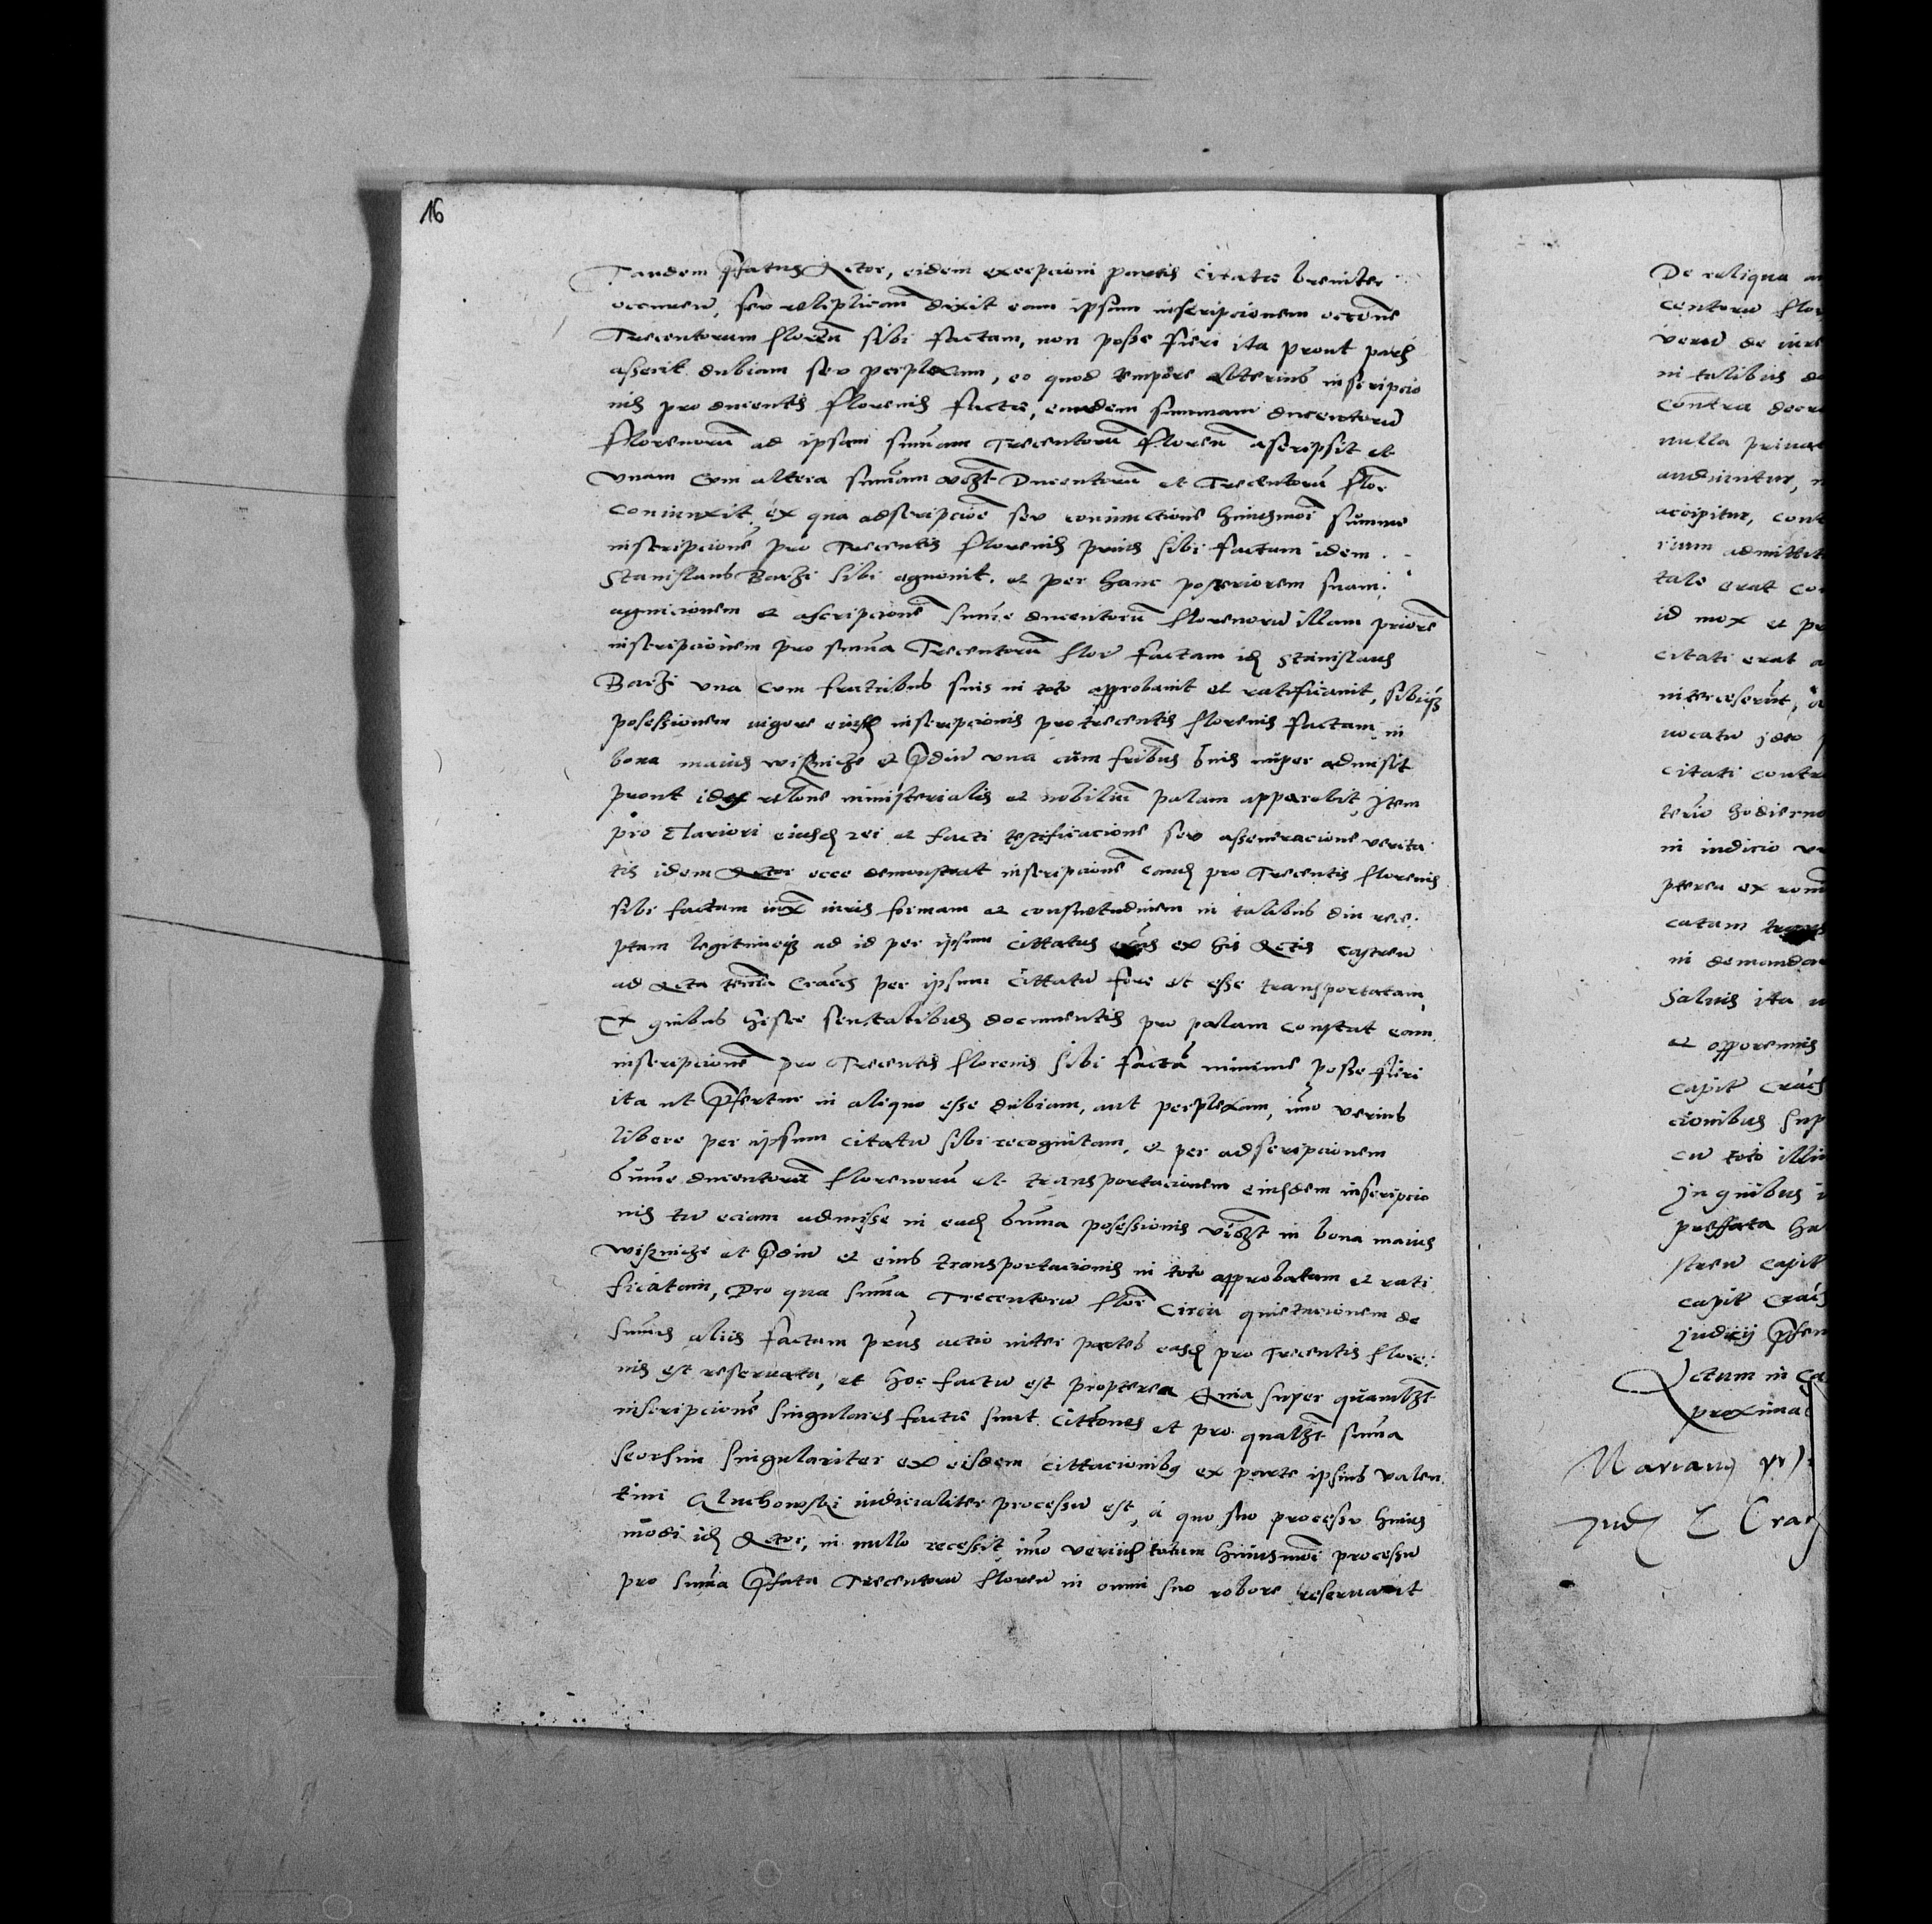 16
Tandem p̄fatus Actor, eidem excepcioni partis citate breuiter
occurren̄, seu replicam̄ dixit eam ipsam inscripcionem occōne
Trecentorum floren̄ sibi factam, non posse fieri ita prout pars
asserit dubiam seu perplexam, eo quod tempore alterius inscripcio
nis pro ducentis florenis facte, eandem summam ducentorū
florenorū ad ipsam sūmam Trecentorū florenū ascripsit et
vnam cum altera sūmam vcƺt Ducentorū et Trecentorū flor̄
coniunxit, ex qua adscripcioē seu coniunctione huiusmoī sūmme
inscripcionē pro Trecentis florenis prius sibi factam idem
Stanislaus Barƺi sibi agnouit, et per hanc posteriorem suam
agnicionem et ascripcionē sūme ducentorū florenorū illam priorē
inscripcionem pro sūma Trecentorū flor̄ factam idē Stanislaus
Barƺi una cum fratribus suis in toto approbauit et ratificauit, sibiqƺ
possessionem uigore eiusdē inscripcionis pro trecentis florenis factam in
bona maius wisznicze et p̄diū una cum fribus suis nuper admisit
prout idƺ ex rēlone ministerialis et nobiliū palam apparebit, Item
pro clariori eiusdē rei et facti testificacione seu asseueracione verita
tis idem Actor ecce demonstrat inscripcionē eandē pro Trecentis florenis
sibi factam iuxᵃ iuris formam et consuetudinem in talibus diu rece
ptam legitimeqƺ ad id per ipsum cittatus ex his Actis castren̄
ad Acta terrīa Cracōs per ipsum cittatū fore et esse transportatam
Ex quibus hisce documentis pro palam constat eam
inscripcionē pro Trecentis florenis sibi factā minime posse fieri
ita ut p̄fertur in aliquo esse dubiam, aut perplexam, imo verius
libere per ipsum citatū sibi recognitam, et per adscripcionem
sūme ducentorū florenorū et transportacionem eiusdem inscripcio
nis tū eciam admisse in eadē sūma possessionis vidƺt in bona maius
wisznicze et p̄diū et eius transportacionis in toto approbatam et rati
ficatam, Pro qua sūma Trecentorū flor̄ circa quietacionem de
sūmis aliis factam prius actio inter partes easdē pro Trecentis flore
nis est reseruata, et hoc factū est propterea Quia super quamlƺt
inscripcionē singulares facte sunt cittōnes et pro qualƺt sūma
seorsim singulariter ex eisdem cittacionibꝫ ex parte ipsius valen
tini Gluchowski iudicialiter processū est, a quo suo processu huius
modi idē Actor, in nullo recessit imo verius totum huiusmoī processū
pro sūma p̄fata Trecentorū florenū in omni suo robore reseruauit
De reliqua
centorū flo
verū de iure
in talibus de
contra decre
nulla priua
audiuntur,
accipitur, cont
rium admittit
tale erat co
id mox et pr
citati erat a
intercesserūt,
uocatū ideo
citati contr
terio hodierno
in iudicio
pterea ex
catam
in demandā
saluis ita
et opponenis
capit Cracōs
cionibus sup
cū toto illi
In quibus
preffata ha
stren̄ capit
capit Cracō
Judicij p̄sen
Actum in Ca
proxima
Marianꝫ
Judꝫ Crac